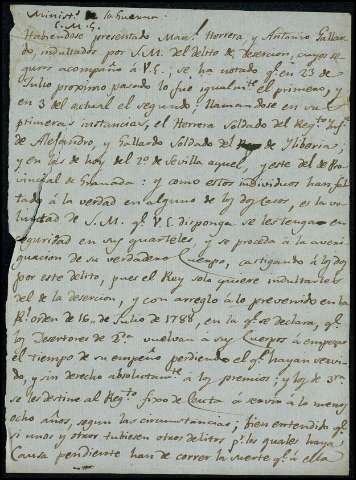 Minist.º de la Guerra
E.M.S.
Habiendose presentado Man.l Herrera y Antonio Gallar
do, indultados por S.M. del delito de desercion, cuyos se
guros acompaño á V.E., se ha notado q.e en 23 de
Julio proximo pasado lo fue igualm.te el primero, y
en 3 del actual el segundo, llamandose en sus
primeras instancias, el Herrera Soldado del Reg.to Inf.a
de Alejandro, y Gallardo Soldado del de Ybberia;
y en las de hoy del 2º de Sevilla aquel, y este del de Pro
vincial de Granada: y como estos individuos han fal
tado á la verdad en alguno de los dos casos, es la vo
luntad de S.M. q.e V.E. disponga se les tenga en
seguridad en sus quarteles, y se proceda á la averi
guacion de su verdadero Cuerpo, castigando á los dos
por este delito, pues el Rey solo quiere indultarles
del de la desercion, y con arreglo á lo prevenido en la
R.l orden de 16 de Julio de 1788, en la q.e se declara, q.e
los Desertores de 2.a vuelvan á sus Cuerpos á empezar
el tiempo de su empeño perdiendo el q.e hayan servi
do, y sin derecho absolutam.te á los premios; y los de 3.a
se les destine al Reg.to fixo de Ceuta á servir á lo menos
ocho años, segun las circunstancias; bien entendido q.e
si unos y otros tubiesen otros delitos p.r los quales haya
Causa pendiente han de correr la suerte q.e á ella